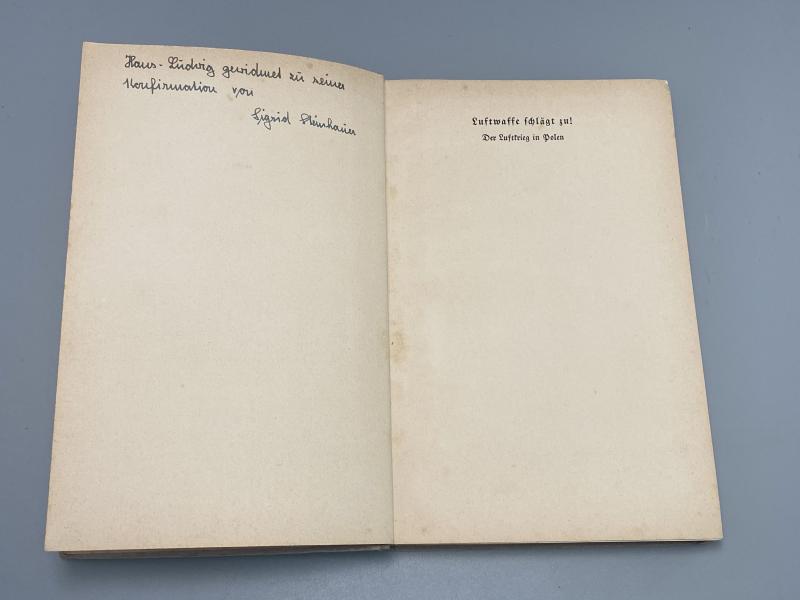 Hans-Ludwig gewidmet zu seiner
Konfirmation von
Sigrid Steinhauer
Luftwaffe schlägt zu!
Der Luftkrieg in Polen